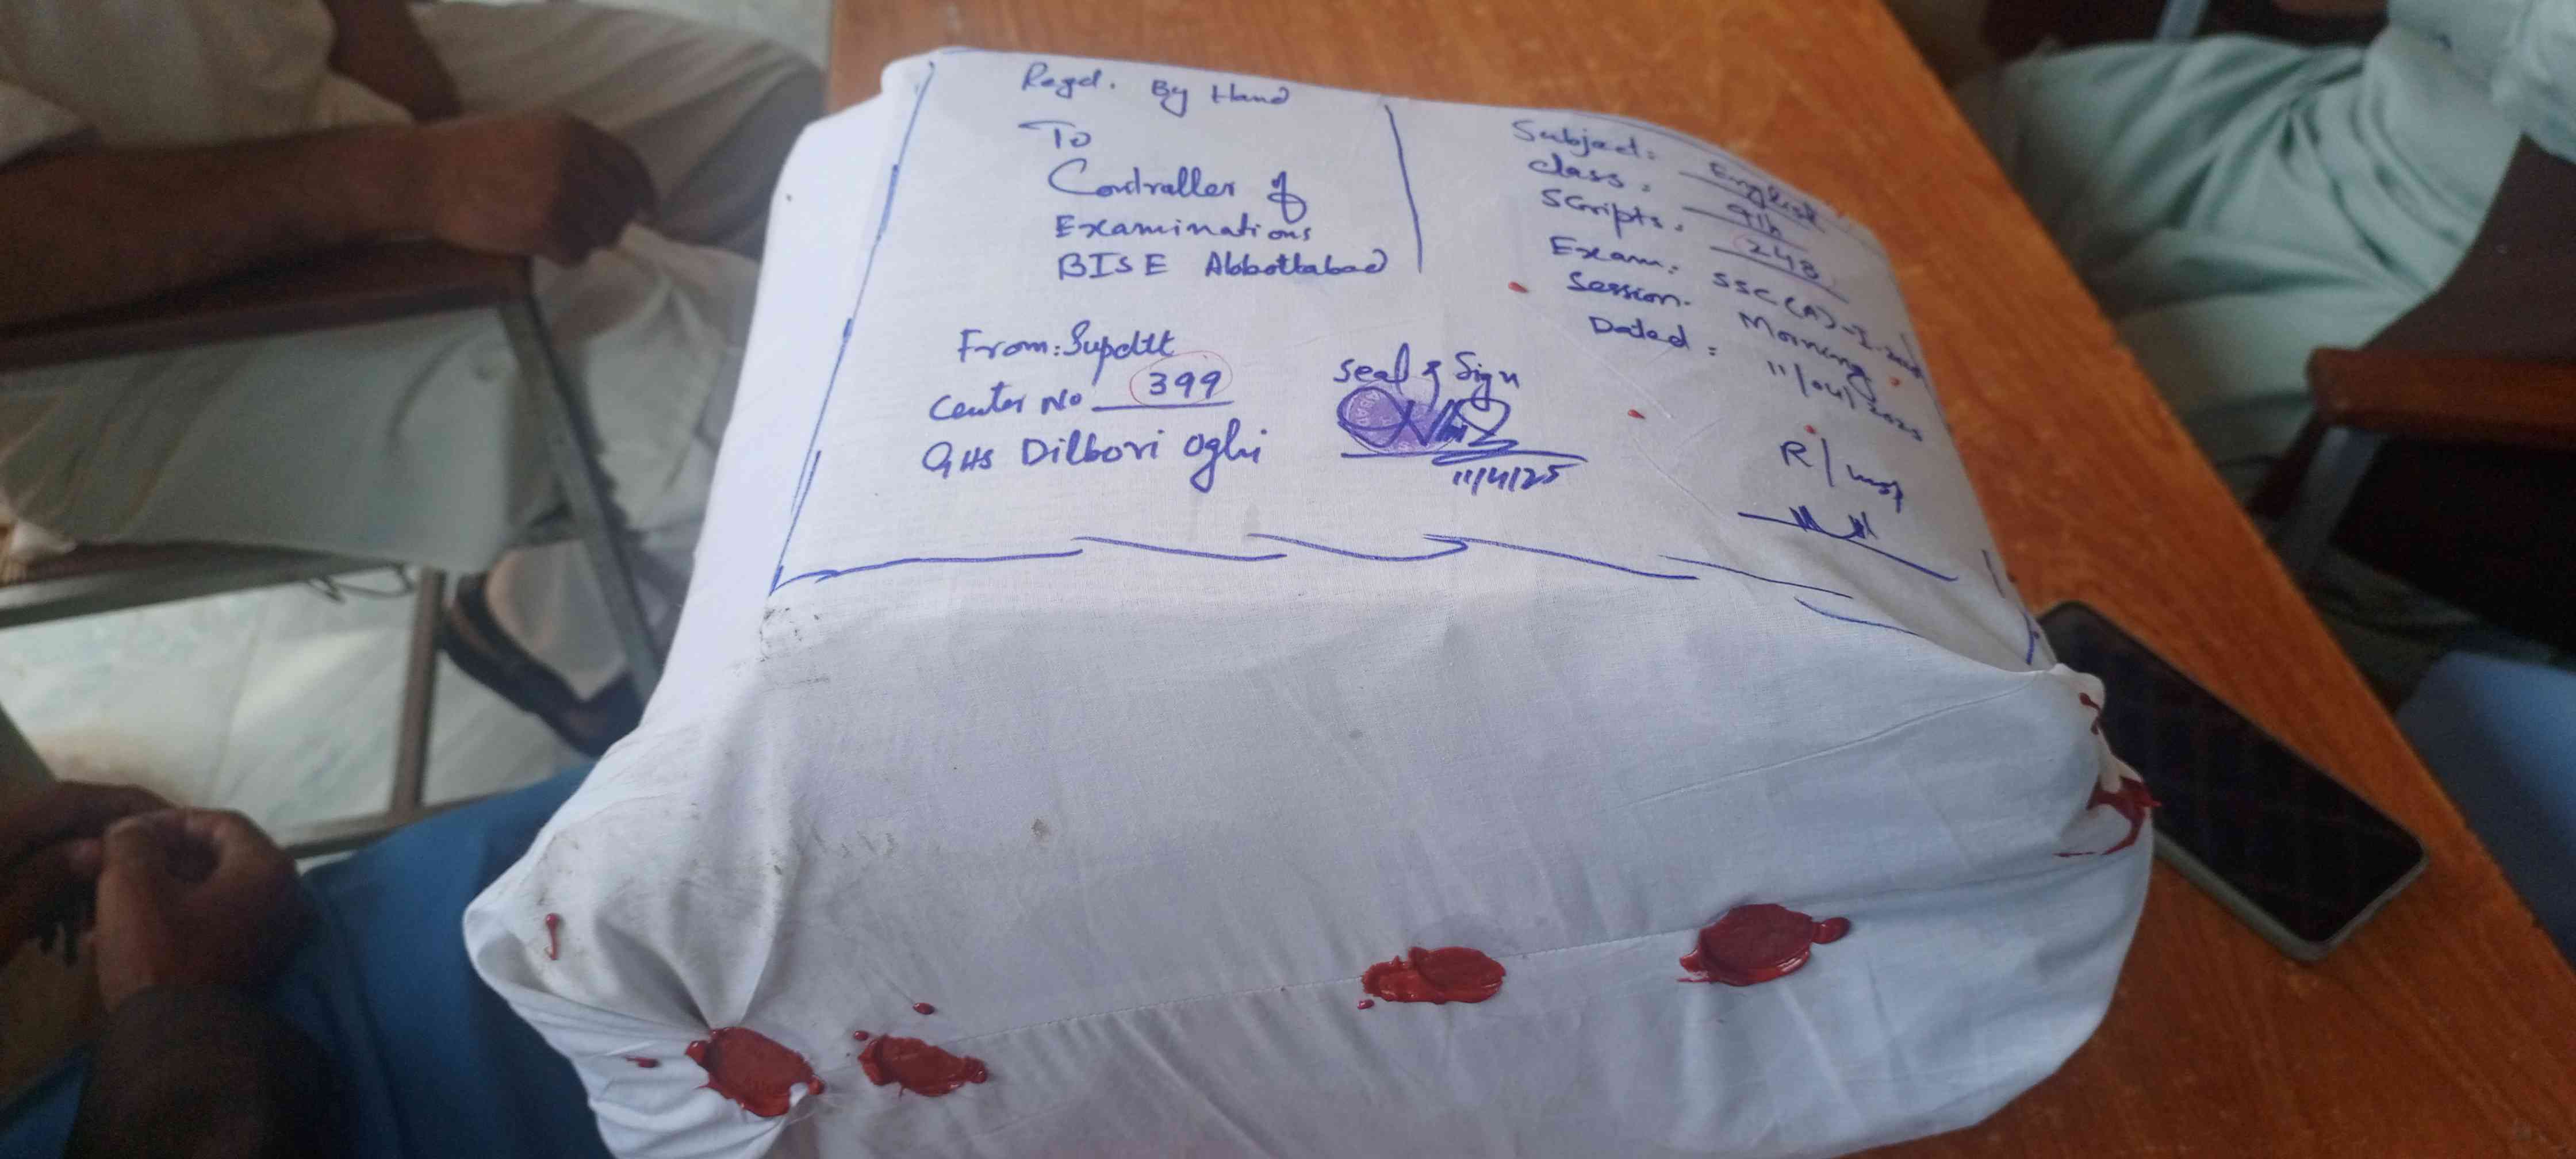 Regd. By Hand
To
Controller of
Examinations
BISE Abbottabad
Subject: English
Class: 9th
Scripts: 248
Exam: SSC(A)-I-
Session. Morning
Dated: 11/04/2025
From: Supdtt
Center No 399
GHS Dilbori Oghi
Seal & Sign
11/4/25
R/